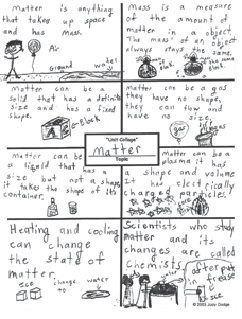 Matter is anything
that takes up space
and has mass
Air
ground
water
Mass is a measure
of the amount of
matter in a object.
The mass of an object
always stays the same.
Matter can be a
solid that has a definite
size and has a fixed
shape.
Block
Matter can be a gas
they have no shape,
they can flow and
have no size.
gas
"Unit Collage"
Matter
Topic
Matter can be
a liquid that has a
size but not a shape,
it takes the shape of its
container.
Matter can be a
plasma it has
a shape and volume
it has electrically
charged particles.
Heating and cooling
can change
the state of
matter.
ice
change to
water
Scientists who study
matter and its
changes are called
Chemists.
© 2005 Judy Dodge